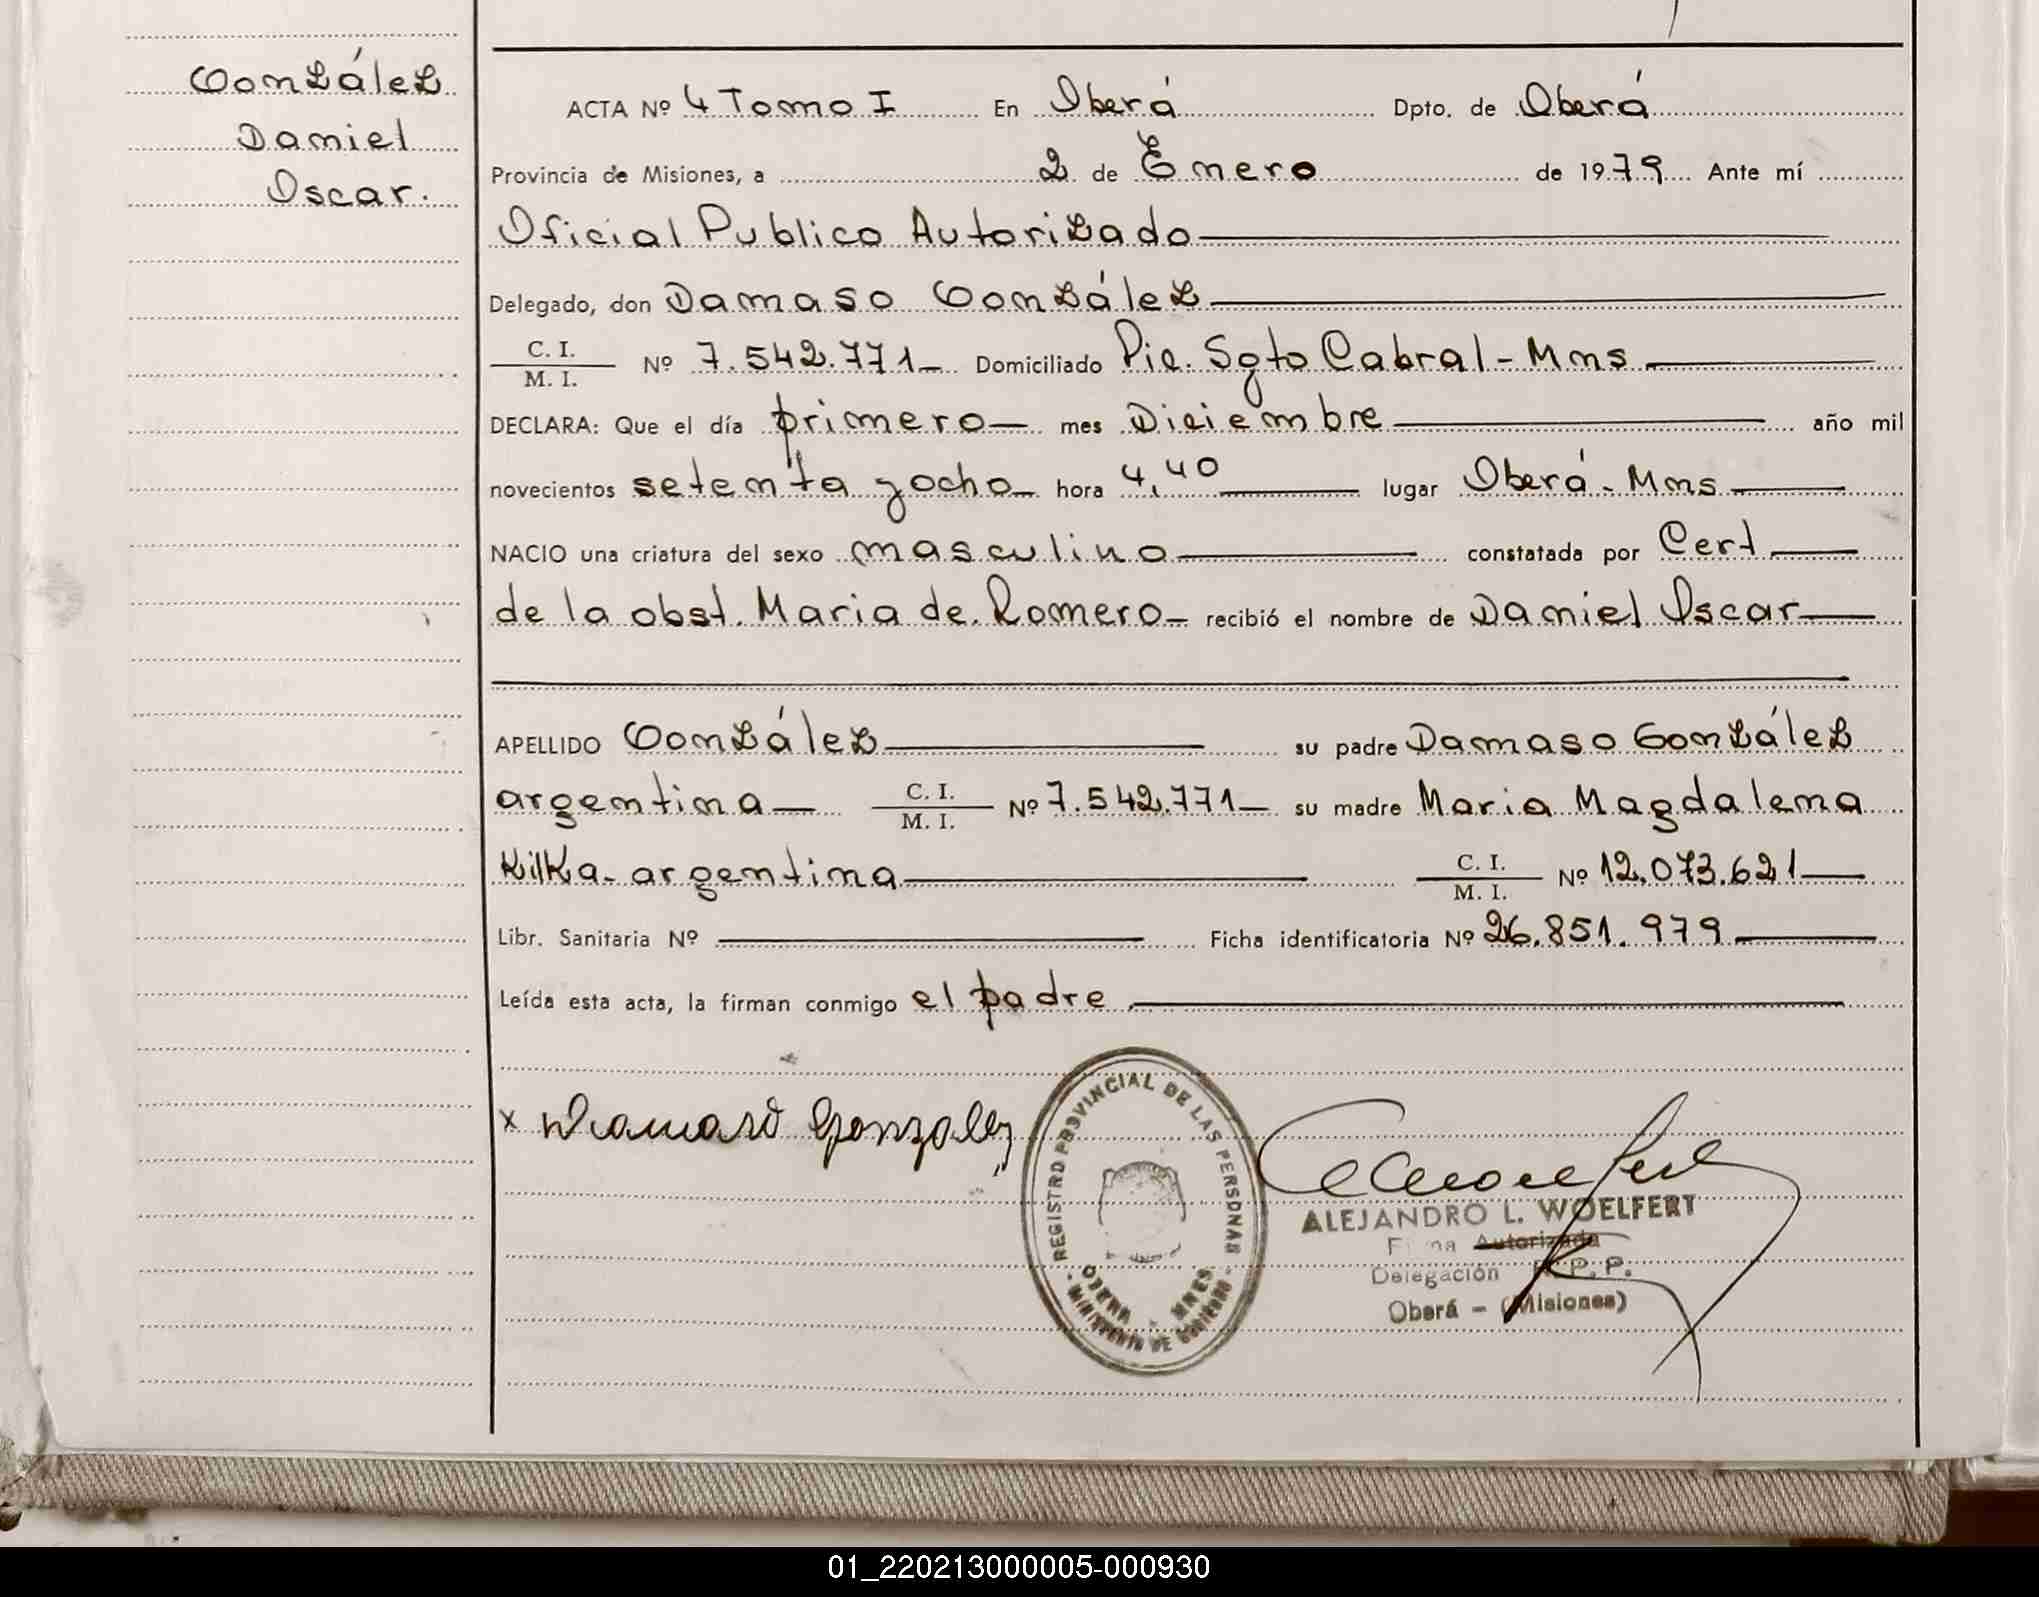 González
Daniel
Oscar.
ACTA Nº 4 Tomo I En Oberá Dpto. de Oberá
Provincia de Misiones, a 2 de Enero de 1979 Ante mí
Oficial Publico Autorizado
Delegado, don Damaso González
C. I.
M. I.
Nº 7.542.771 Domiciliado Pic. Sgto Cabral - Mns
DECLARA: Que el día primero mes Diciembre año mil
novecientos setenta y ocho hora 4,40 lugar Oberá - Mns
NACIO una criatura del sexo masculino constatada por Cert
de la obst. Maria de Romero recibió el nombre de Daniel Oscar
APELLIDO González su padre Damaso González
argentina C. I.
M. I.
Nº 7.542.771 su madre Maria Magdalena
Kilka - argentina C. I.
M. I.
Nº 12.073.621
Libr. Sanitaria Nº Ficha identificatoria Nº 26.851.979
Leída esta acta, la firman conmigo el padre
x Damaso Gonzalez
REGISTRO PROVINCIAL DE LAS PERSONAS
OBERA - MNES
MINISTERIO DE GOBIERNO
ALEJANDRO L. WOELFERT
Firma Autorizada
Delegación R. P. P.
Oberá - (Misiones)
01_220213000005-000930